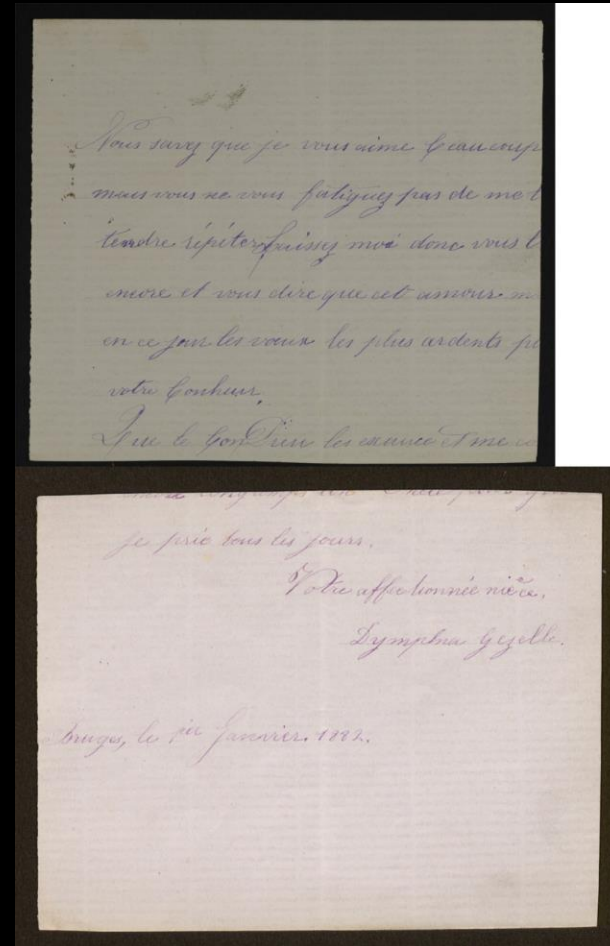 Vous savez que je vous aime beaucoup
mais vous ne vous fatiguez pas de me l
tendre répéter, laissez moi donc vous l
encore et vous dire que cet amour m
en ce jour les vœux les plus ardents p
votre bonheur.
Que le bon Dieu les exauce et me co
encore longtemps que
je prie tous les jours.
Votre affectionnée nièce,
Dymphna Gezelle.
Bruges, le 1er Janvier. 1882.